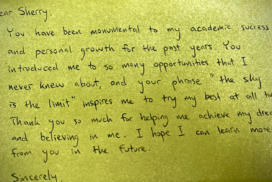 ear Sherry,
You have been monumental to my academic success
and personal growth for the past years. You
introduced me to so many opportunities that I
never knew about, and your phrase "the sky
is the limit" inspires me to try my best at all
Thank you so much for helping me achieve my
and believing in me. I hope I can learn more
from you in the future.
Sincerely